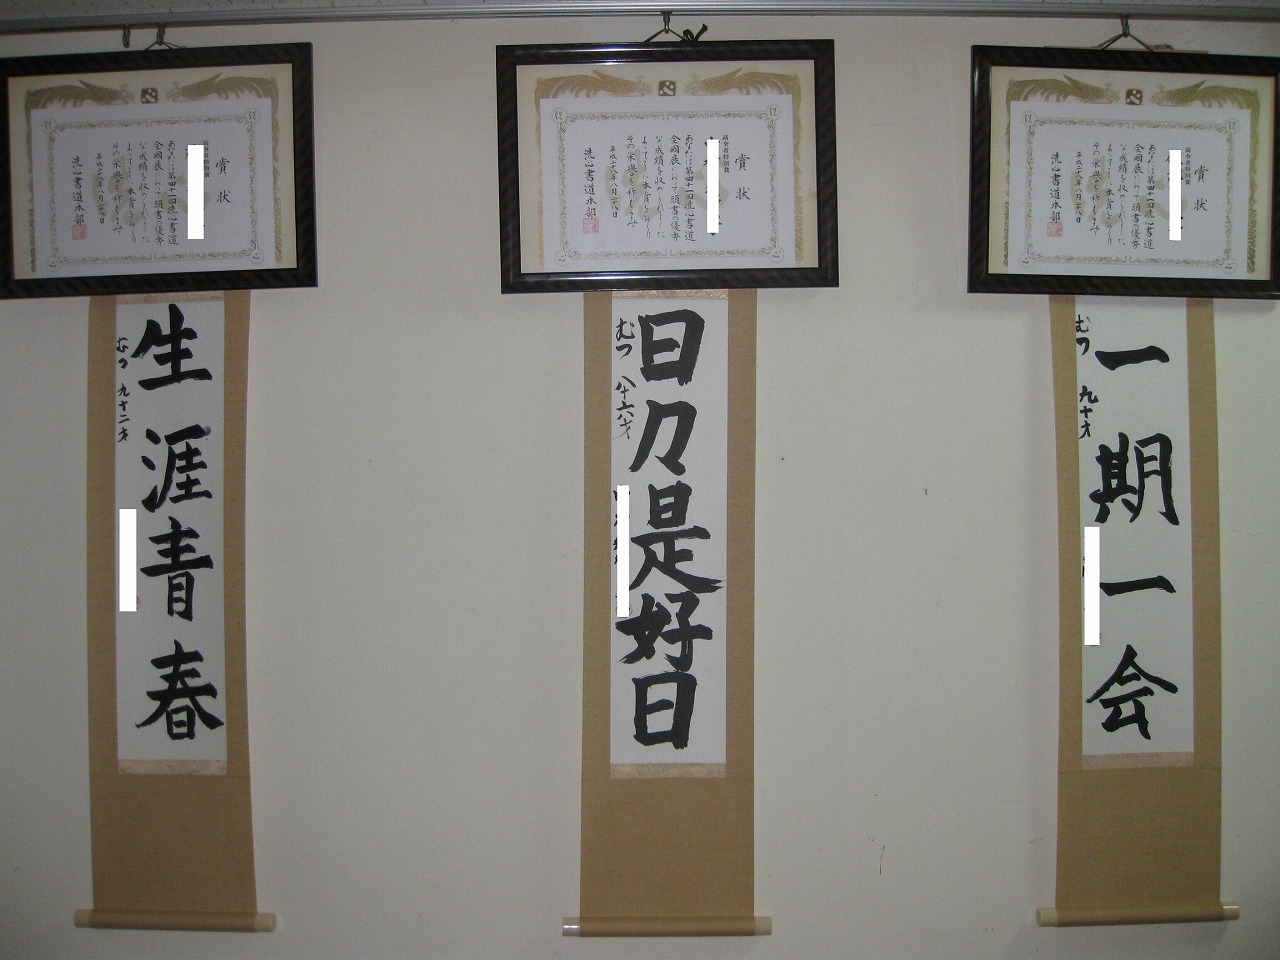 賞状
高令者特別賞
あなたは第四十一回洗心書道
全國展において頭書の優秀
な成績を収められました
よってここに本賞をおくり
その栄誉を称えます
平成二十八年八月二十八日
洗心書道本部
生涯青春
むつ 九十二才
賞状
高令者特別賞
あなたは第四十一回洗心書道
全國展において頭書の優秀
な成績を収められました
よってここに本賞をおくり
その栄誉を称えます
平成二十八年八月二十八日
洗心書道本部
日々是好日
むつ 八十六才
賞状
高令者特別賞
あなたは第四十一回洗心書道
全國展において頭書の優秀
な成績を収められました
よってここに本賞をおくり
その栄誉を称えます
平成二十八年八月二十八日
洗心書道本部
一期一会
むつ 九十才